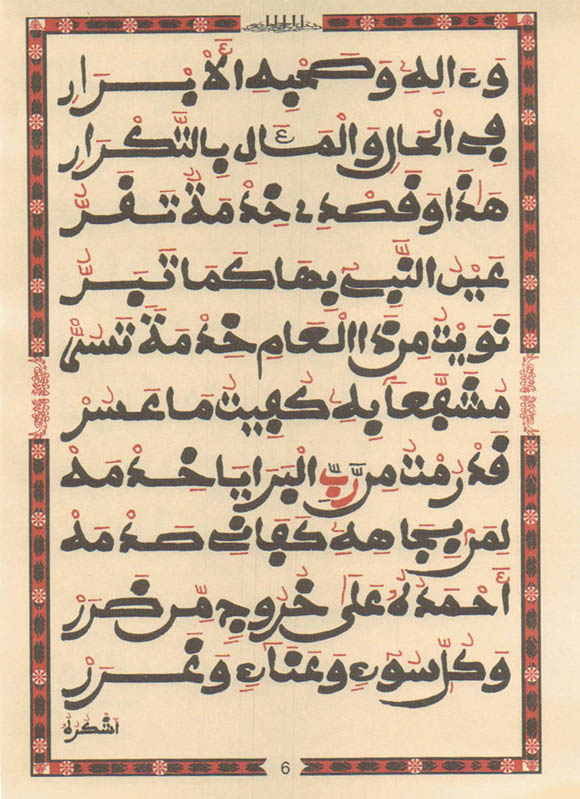 وَءَالِهِ وَصَحْبِهِ الْأَبْرَارِ
فِي الْحَالِ وَالْمَـَٔالِ بِالتَّكْرَارِ
هَذَا وَقَصْدِي خِدْمَةٌ تَقَرُّ
عَيْنُ النَّبِي بِهَا كَمَا تَبَرُّ
نَوَيْتُ مِن ذَا الْعَامِ خِدْمَةً تَسُرّْ
مُشَفَّعاً بِهِ كُفِيتُ مَا عَسُرْ
قَدْ رُمْتُ مِن رَّبِّ الْبَرَايَا خِدْمَهْ
لِمَن بِجَاهِهِ كَفَانِي صَدْمَهْ
أَحْمَدُهُ عَلَى خُرُوجٍ مِّن ضَرَرْ
وَكُلِّ سُوءٍ وَعَنَاءٍ وَغَرَرْ
أشْكُرُهُ
6